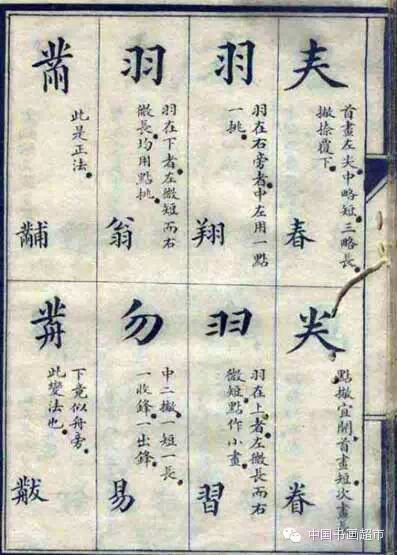 𡗗
首畫左尖中略短三略長
撇捺覆下
春
龹
點撇宜開首畫短次畫
眷
羽
羽在右旁者中左用一點
一挑
翔
羽
羽在上者左微長而右
微短點作小畫
習
羽
羽在下者左微短而右
微長均用點挑
翁
勿
中二撇一短一長
一收鋒一出鋒
易
黹
此是正法
黼
黹
下竟似舟旁
此變法也
黻
中国书画超市